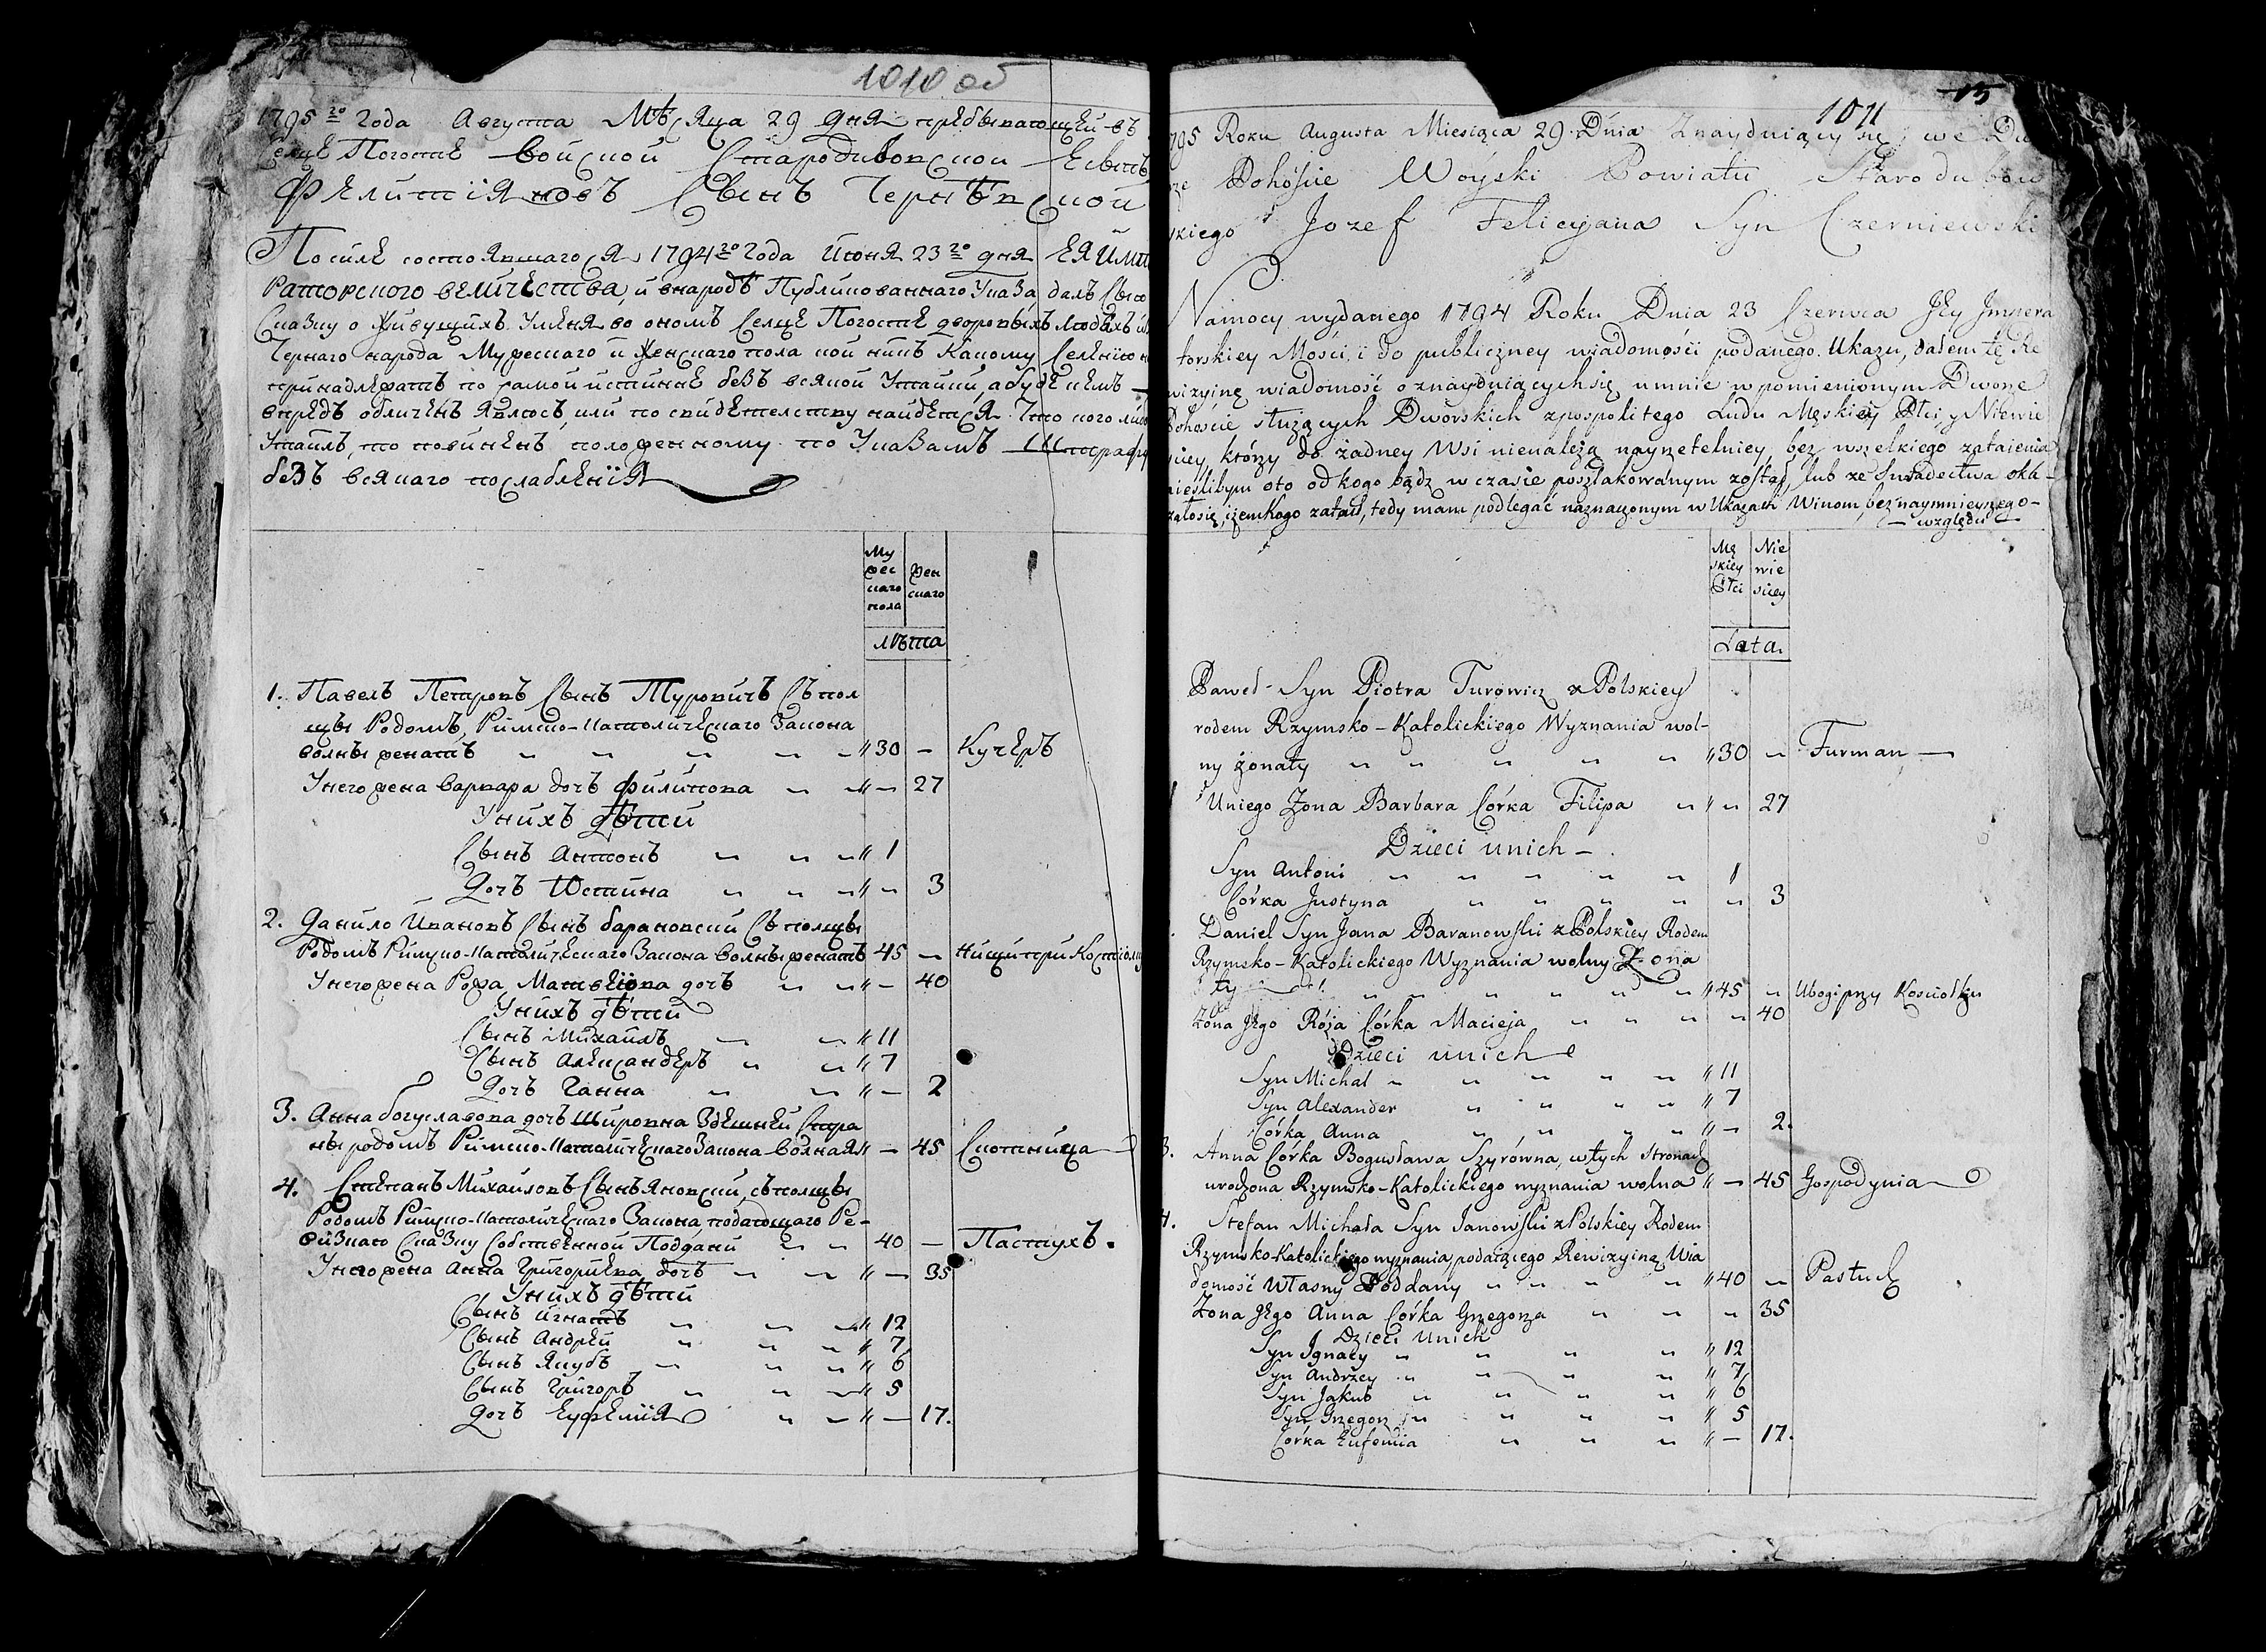 1010 об
1795 го Года Августа Мѣсяца 29 дня пребывающей въ
Селце Погостѣ Войской Стародубовской
Фелитіяновъ Сынъ Чернѣвской
По силе состоявшагося 1794 го Года Июня 23 го дня ЕЯ Импе
раторского величества, и внародъ Публикованнаго Указа далъ Сию
Сказку о Живущихъ Уменя во ономъ Селце Погосте дворовыхъ людяхъ и
Чернаго народа Мужескаго и Женскаго пола кои никъ Какому Селению не
принадлежатъ по самой истинне безъ всякой Утайки, а буде кемъ
впредъ обличенъ явлюсь, или по свидетелству найдется Что кого либо
Утаилъ, то повиненъ положенному по Указамъ Штрафу
безъ всякаго послабления
Му жес каго пола
жен скаго
лѣта
1. Павелъ Петровъ Сынъ Туровичъ Съ пол
щы Родомъ, Римско-католическаго Закона
волны женатъ " 30 - Кучеръ
Унего жена Варвара дочъ Филипова " - 27
Унихъ дѣти
Сынъ Антонъ " 1
Дочъ Юстина " - 3
2. Данило Ивановъ Сынъ барановски Съ полщы
Родомъ Римско-католическаго Закона волны женатъ 45 - Нищи при Костіолу
Унего жена Рожа Матвеiова дочъ " - 40
Унихъ дѣти
Сынъ Михаилъ " 11
Сынъ Александеръ " 7
Дочъ Ганна " - 2
3. Анна богуславова дочъ Шировна Здешней Стра
ны родомъ Римско-католическаго Закона волная " - 45 Скотница
4. Степанъ Михаиловъ Сынъ Яновски, съ полщы
Родомъ Римско-католическаго Закона подающаго Ре-
визкаю Сказку Собственной Поддани 40 - Пастухъ.
Унего жена Анна Григориева дочъ " - 35
Унихъ дѣти
Сынъ Игнатъ " 12
Сынъ Андрей " 7
Сынъ Якубъ " 6
Сынъ Григоръ " 5
Дочъ Еуфемия " - 17.
15
1011
795 Roku Augusta Miesiąca 29 Dnia Znayduiący się we Dwo
rze Pohoście Woyski Powiatu Starodubow
skiego Jozef Felicyana Syn Czerniewski
Namocy wydanego 1794 Roku Dnia 23 Czerwca Jey Impera
torskiey Mości, i do publiczney wiadomości podanego Ukazu, dałem tę Re
wizyinę wiadomość o znayduiącychsię umnie w pomienionym Dworze
Pohoście służących Dworskich z pospolitego Ludu Męskiey Płci, y Niewie
sciey, którzy do żadney Wsi nienależą nayrzetelniey, bez wszelkiego zataienia
ieślibym oto od kogo bądź w czasie poszlakowanym został, lub ze Swiadectwa oka-
załosię, iżemkogo zataił, tedy mam podlegać naznaczonym w Ukazach Winom, bez naymnieyszego-
względu
Mę skiey Płci
Nie wie sciey
Lata.
Paweł Syn Piotra Turowicz z Polskiey
rodem Rzymsko-Katolickiego Wyznania wol-
ny żonaty " 30 - Furman
Uniego Żona Barbara Córka Filipa " - 27
Dzieci unich
Syn Antoni 1
Córka Justyna - 3
Daniel Syn Jana Baranowski z Polskiey Rodem
Rzymsko-Katolickiego Wyznania wolny Żona
ty " 45 - Ubogi przy Kosciołku
Żona Jego Róża Córka Macieja - 40
Dzieci unich
Syn Michał " 11
Syn Alexander " 7
Córka Anna " - 2.
3. Anna Córka Bogusława Szyrówna, w tych Stronach
urodzona Rzymsko-Katolickiego wyznania wolna " - 45 Gospodynia
4. Stefan Michała Syn Janowski z Polskiey Rodem
Rzymsko-Katolickiego wyznania, podaiącego Rewizyinę Wia
domość Własny Poddany " 40 - Pastuch
Żona Jego Anna Córka Grzegorza - 35
Dzieci Unich
Syn Ignaty " 12
Syn Andrzey " 7
Syn Jakub " 6
Syn Grzegorz " 5
Córka Eufemia " - 17.